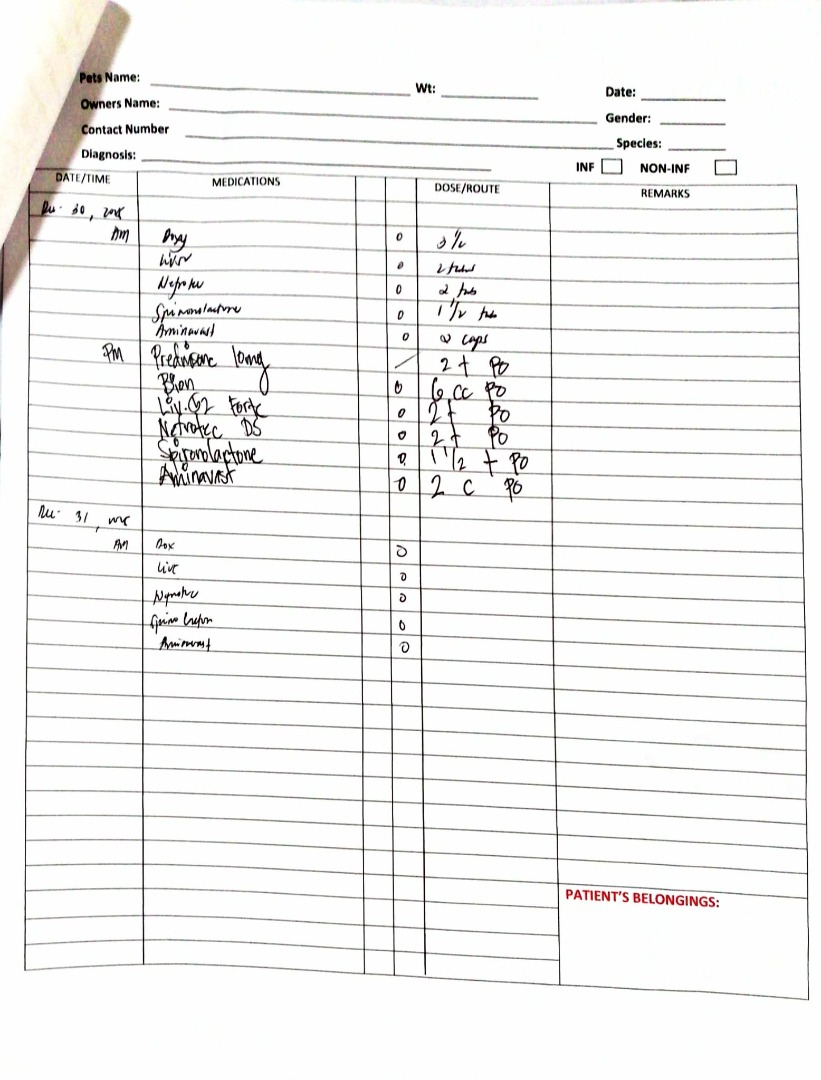 Pets Name:
Wt:
Date:
Owners Name:
Gender:
Contact Number
Species:
Diagnosis:
INF NON-INF
DATE/TIME MEDICATIONS DOSE/ROUTE REMARKS
30,
AM Doxy 0 3 1/2
0 2 tabs
0 2 tab
Spironolactone 0 1 1/2 tab
Aminavast 0 2 caps
PM Prednisone 10mg / 2 t PO
0 6 cc PO
Liv.52 Forte 0 2 t PO
Nefrotec DS 0 2 t PO
Spironolactone 0 1 1/2 t PO
Aminavast 0 2 c PO
31,
AM Dox 0
Live 0
0
0
Aminavast 0
PATIENT'S BELONGINGS: